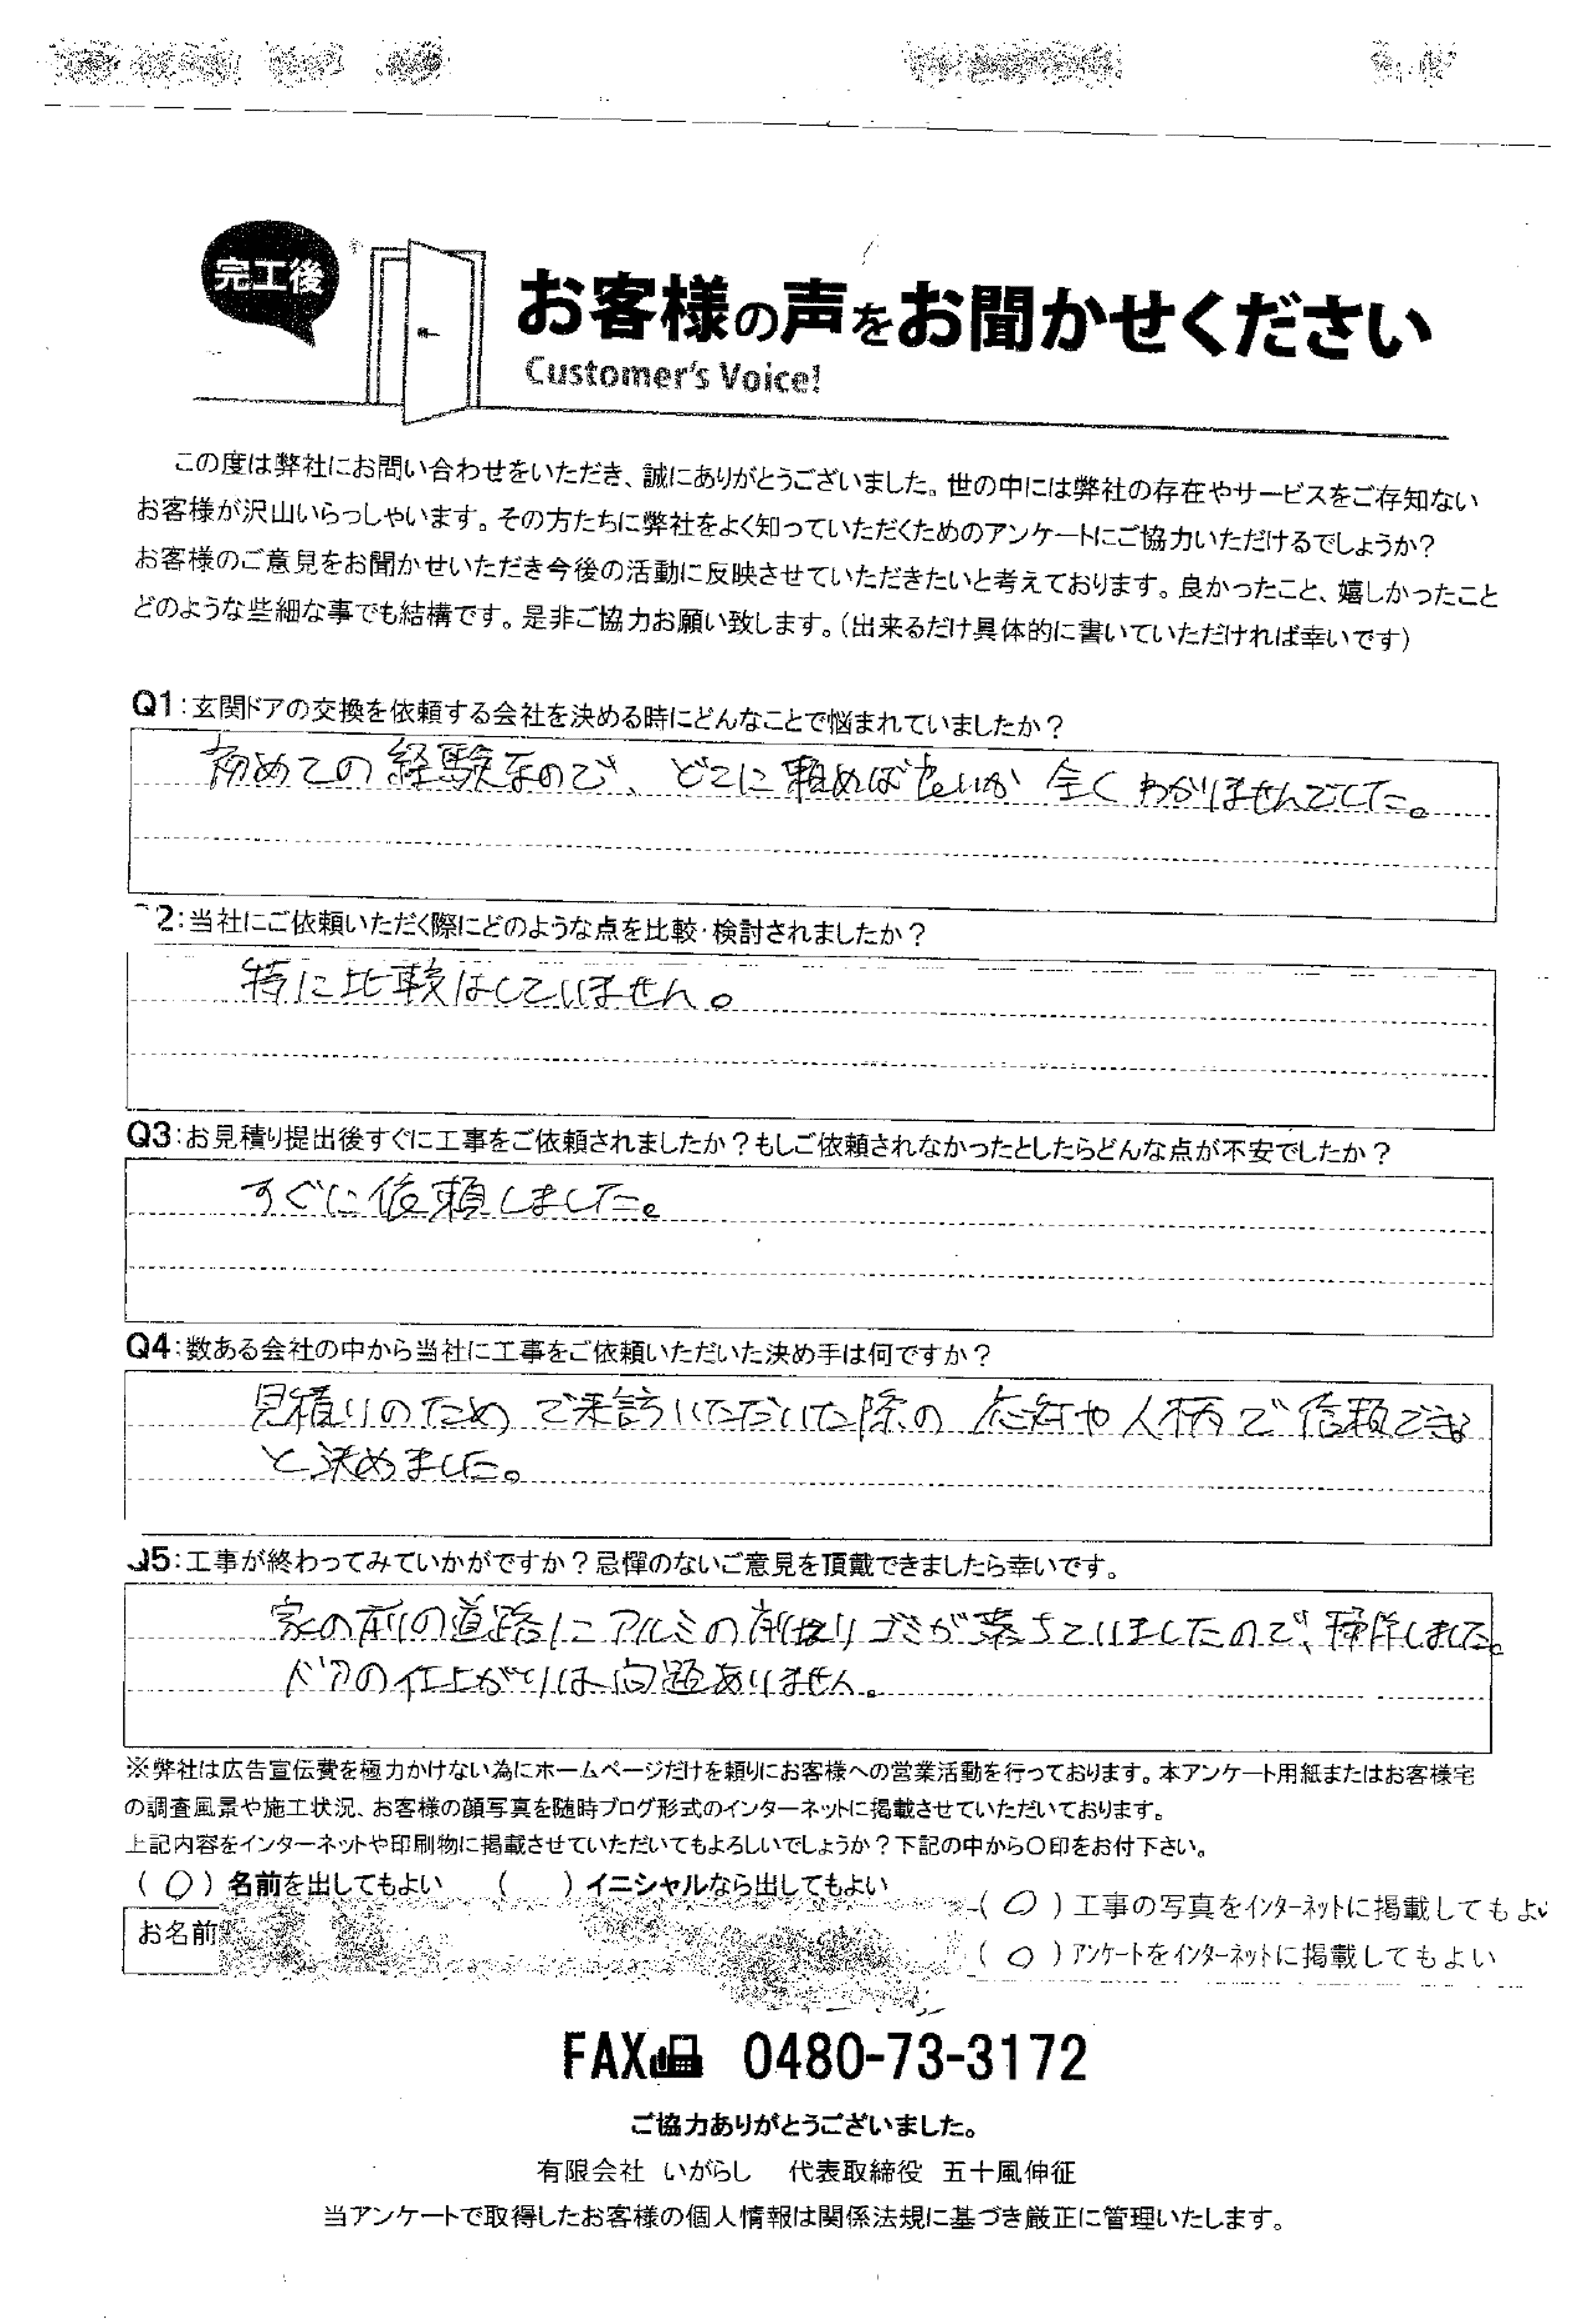 完工後
お客様の声をお聞かせください
Customer's Voice!
この度は弊社にお問い合わせをいただき、誠にありがとうございました。世の中には弊社の存在やサービスをご存知ない
お客様が沢山いらっしゃいます。その方たちに弊社をよく知っていただくためのアンケートにご協力いただけるでしょうか?
お客様のご意見をお聞かせいただき今後の活動に反映させていただきたいと考えております。良かったこと、嬉しかったこと
どのような些細な事でも結構です。是非ご協力お願い致します。(出来るだけ具体的に書いていただければ幸いです)
Q1:玄関ドアの交換を依頼する会社を決める時にどんなことで悩まれていましたか?
初めての経験なので、どこに頼めば良いか全くわかりませんでした。
2:当社にご依頼いただく際にどのような点を比較・検討されましたか?
特に比較はしていません。
Q3:お見積り提出後すぐに工事をご依頼されましたか?もしご依頼されなかったとしたらどんな点が不安でしたか?
すぐに依頼しました。
Q4:数ある会社の中から当社に工事をご依頼いただいた決め手は何ですか?
見積りのためご来訪いただいた際の応対や人柄で信頼できる
と決めました。
Q5:工事が終わってみていかがですか?忌憚のないご意見を頂戴できましたら幸いです。
家の前の道路にアルミの削りゴミが落ちていましたので、掃除しました。
ドアの仕上がりは問題ありません。
※弊社は広告宣伝費を極力かけない為にホームページだけを頼りにお客様への営業活動を行っております。本アンケート用紙またはお客様宅
の調査風景や施工状況、お客様の顔写真を随時ブログ形式のインターネットに掲載させていただいております。
上記内容をインターネットや印刷物に掲載させていただいてもよろしいでしょうか?下記の中から○印をお付下さい。
(○)名前を出してもよい ( )イニシャルなら出してもよい
(○)工事の写真をインターネットに掲載してもよい
お名前
(○)アンケートをインターネットに掲載してもよい
FAX 0480-73-3172
ご協力ありがとうございました。
有限会社 いがらし 代表取締役 五十嵐伸征
当アンケートで取得したお客様の個人情報は関係法規に基づき厳正に管理いたします。